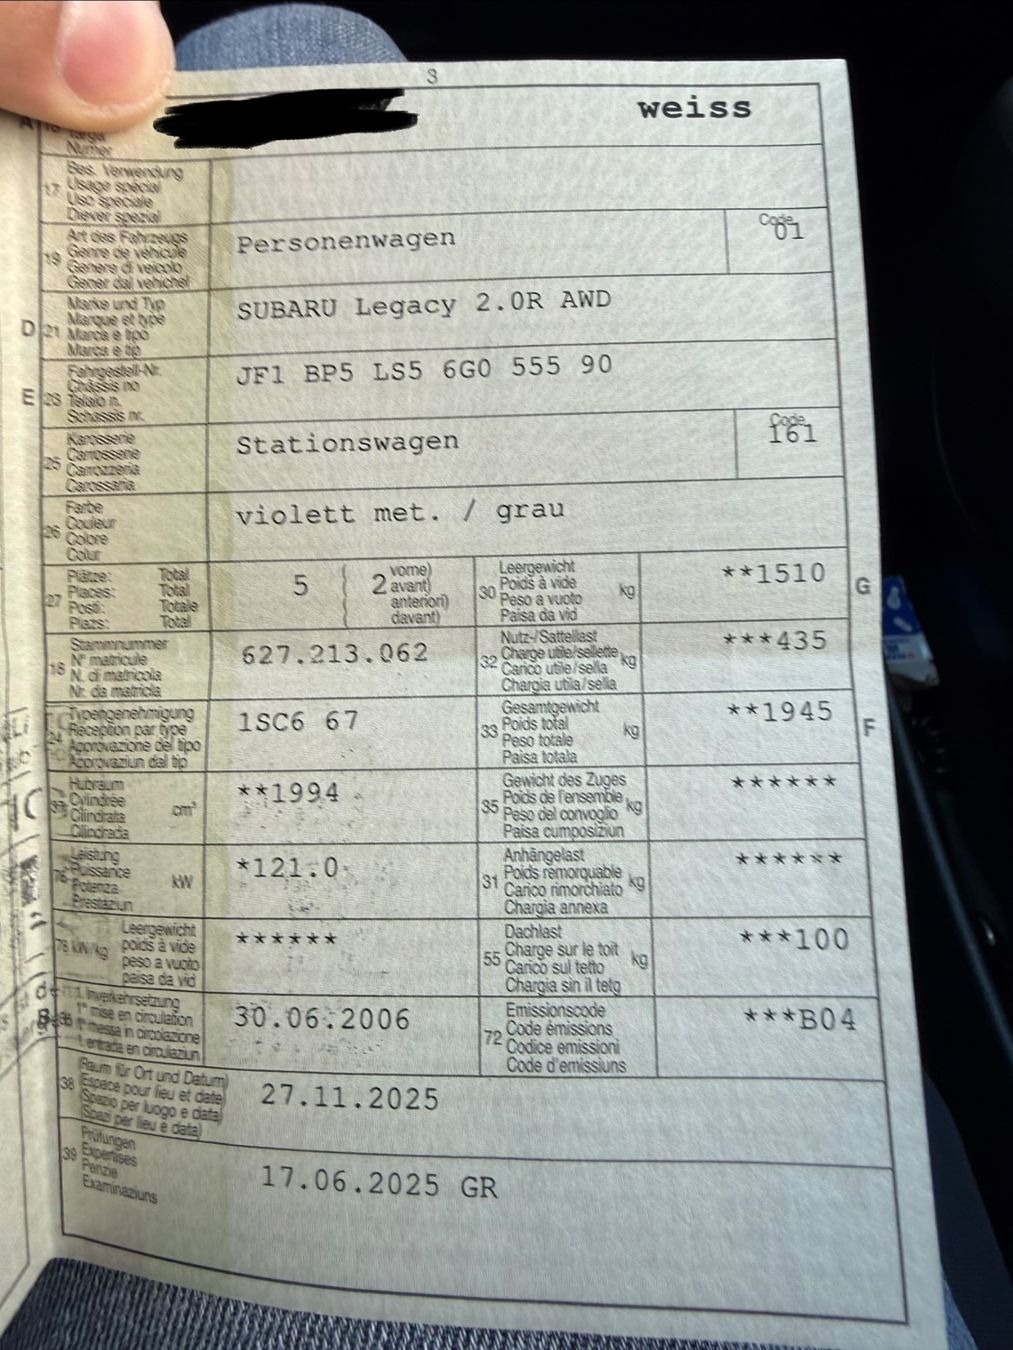 3
A
Targa
Numer
weiss
17
Bes. Verwendung
Usage spécial
Uso speciale
Diever spezial
19
Art des Fahrzeugs
Genre de véhicule
Genere di veicolo
Gener dal vehichel
Personenwagen
Code
01
D
21
Marke und Typ
Marque et type
Marca e tipo
Marca e tip
SUBARU Legacy 2.0R AWD
E
23
Fahrgestell-Nr.
Châssis no
Telaio n.
Schassis nr.
JF1 BP5 LS5 6G0 555 90
25
Karosserie
Carrosserie
Carrozzeria
Carossaria
Stationswagen
Code
161
26
Farbe
Couleur
Colore
Colur
violett met. / grau
27
Plätze: Total
Places: Total
Posti: Totale
Plazs: Total
5
2
vorne)
avant)
anteriori)
davant)
30
Leergewicht
Poids à vide
Peso a vuoto
Paisa da vid
kg
**1510
G
18
Stammnummer
N° matricule
N. di matricola
Nr. da matricla
627.213.062
32
Nutz-/Sattellast
Charge utile/sellette
Carico utile/sella
Chargia utila/sella
kg
***435
Typengenehmigung
Réception par type
Approvazione del tipo
Approvaziun dal tip
1SC6 67
33
Gesamtgewicht
Poids total
Peso totale
Paisa totala
kg
**1945
F
37
Hubraum
Cylindrée
Cilindrata
Cilindrada
cm³
**1994
35
Gewicht des Zuges
Poids de l'ensemble
Peso del convoglio
Paisa cumposiziun
kg
******
76
Leistung
Puissance
Potenza
Prestaziun
kW
*121.0
31
Anhängelast
Poids remorquable
Carico rimorchiato
Chargia annexa
kg
******
78 kW/kg
Leergewicht
poids à vide
peso a vuoto
paisa da vid
******
55
Dachlast
Charge sur le toit
Carico sul tetto
Chargia sin il tetg
kg
***100
B
36
1. Inverkehrsetzung
1re mise en circulation
1a messa in circolazione
1. entrada en circulaziun
30.06.2006
72
Emissionscode
Code émissions
Codice emissioni
Code d'emissiuns
***B04
38
(Raum für Ort und Datum)
(Espace pour lieu et date)
(Spazio per luogo e data)
(Spazi per lieu e data)
27.11.2025
39
Prüfungen
Expertises
Perizie
Examinaziuns
17.06.2025 GR